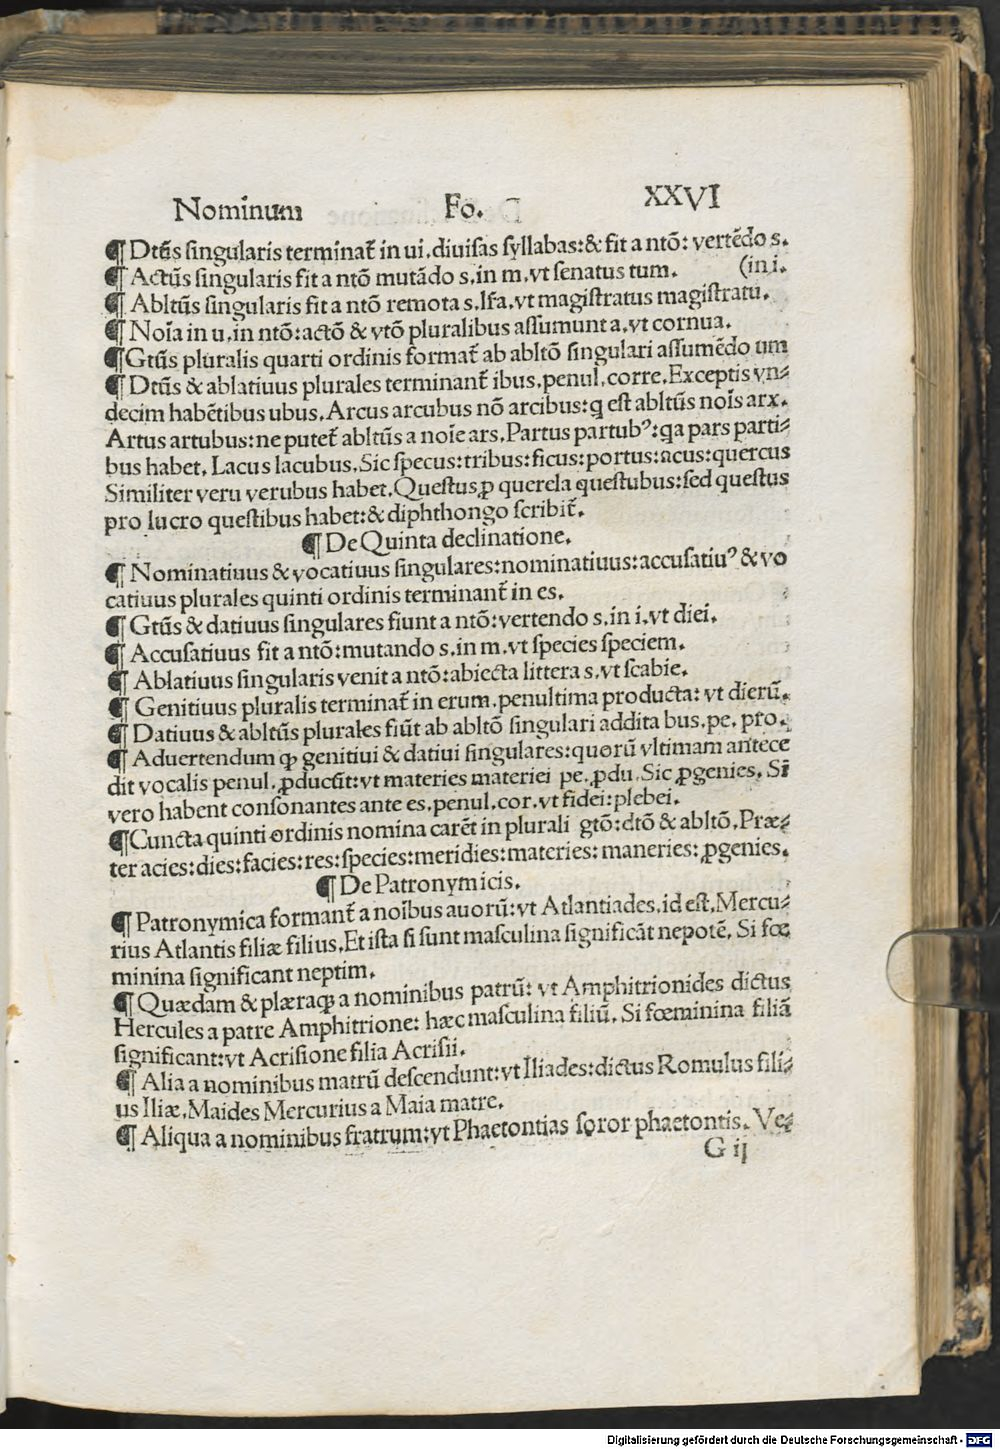 Nominum Fo. XXVI
¶ Dtūs singularis terminat̄ in ui. diuisas syllabas: & fit a ntō: vertēdo s.
¶ Actūs singularis fit a ntō mutādo s. in m. vt senatus tum. (in i.
¶ Abltūs singularis fit a ntō remota s. lr̄a. vt magistratus magistratu.
¶ Noīa in u. in ntō: actō & vtō pluralibus assumunt a. vt cornua.
¶ Gtūs pluralis quarti ordinis format̄ ab abltō singulari assumēdo um
¶ Dtūs & ablatiuus plurales terminant̄ ibus. penul. corre. Exceptis vn⸗
decim habētibus ubus. Arcus arcubus nō arcibus: q est abltūs noīs arx.
Artus artubus: ne putet̄ abltūs a noīe ars. Partus partubꝰ: qa pars parti⸗
bus habet. Lacus lacubus. Sic specus: tribus: ficus: portus: acus: quercus
Similiter veru verubus habet. Questus ꝓ querela questubus: sed questus
pro lucro questibus habet: & diphthongo scribit̄.
¶ De Quinta declinatione.
¶ Nominatiuus & vocatiuus singulares: nominatiuus: accusatiuꝰ & vo
catiuus plurales quinti ordinis terminant̄ in es.
¶ Gtūs & datiuus singulares fiunt a ntō: vertendo s. in i. vt diei.
¶ Accusatiuus fit a ntō: mutando s. in m. vt species speciem.
¶ Ablatiuus singularis venit a ntō: abiecta littera s. vt scabie.
¶ Genitiuus pluralis terminat̄ in erum. penultima producta: vt dierū.
¶ Datiuus & abltūs plurales fiūt ab abltō singulari addita bus. pe. pro.
¶ Aduertendum ꝙ genitiui & datiui singulares: quorū vltimam antece
dit vocalis penul. ꝓducūt: vt materies materiei pe. ꝓdu. Sic ꝓgenies. Si
vero habent consonantes ante es. penul. cor. vt fidei: plebei.
¶ Cuncta quinti ordinis nomina carēt in plurali gtō: dtō & abltō. Præ⸗
ter acies: dies: facies: res: species: meridies: materies: maneries: ꝓgenies.
¶ De Patronymicis.
¶ Patronymica formant̄ a noībus auorū: vt Atlantiades. id est. Mercu⸗
rius Atlantis filiæ filius. Et ista si sunt masculina significāt nepotē. Si fœ
minina significant neptim.
¶ Quædam & plæraqꝫ a nominibus patrū: vt Amphitrionides dictus
Hercules a patre Amphitrione: hæc masculina filiū. Si fœminina filiā
significant: vt Acrisione filia Acrisii.
¶ Alia a nominibus matrū descendunt: vt Iliades: dictus Romulus fili⸗
us Iliæ. Maides Mercurius a Maia matre.
¶ Aliqua a nominibus fratrum: vt Phaetontias soror phaetontis. Ve⸗
G ij
Digitalisierung gefördert durch die Deutsche Forschungsgemeinschaft - DFG